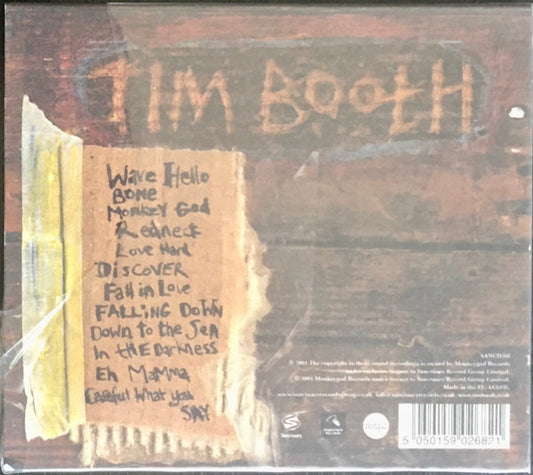 TIM BOOTH
Wave Hello
BONE
Monkey God
Redneck
Love Hard
DISCOVER
Fall in Love
FALLING DOWN
Down to the Sea
In thE DaRkNESS
Eh MaMMa
Careful What you
SAY
℗ 2004 The copyright in these sound recordings is owned by Monkeygod Records
under exclusive license to Sanctuary Record Group Limited.
© 2004 Monkeygod Records under license to Sanctuary Record Group Limited.
Made in the EU.
Sanctuary
5 050159 026821